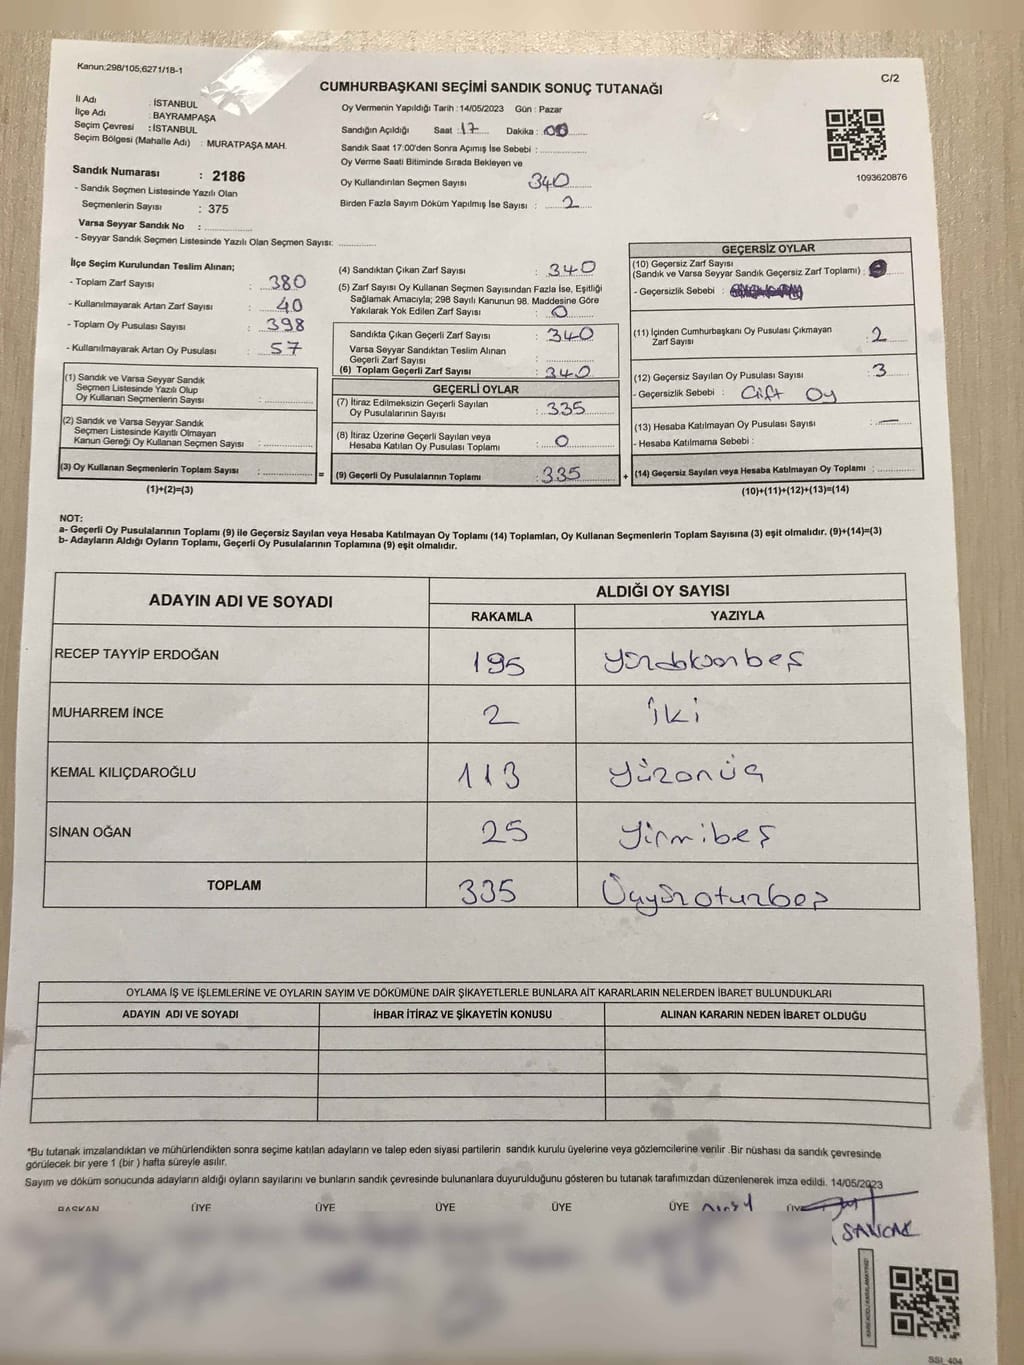 Kanun:298/105,6271/18-1
C/2
CUMHURBAŞKANI SEÇİMİ SANDIK SONUÇ TUTANAĞI
İl Adı : İSTANBUL
İlçe Adı : BAYRAMPAŞA
Seçim Çevresi : İSTANBUL
Seçim Bölgesi (Mahalle Adı) : MURATPAŞA MAH.
Sandık Numarası : 2186
- Sandık Seçmen Listesinde Yazılı Olan
Seçmenlerin Sayısı : 375
Varsa Seyyar Sandık No :
- Seyyar Sandık Seçmen Listesinde Yazılı Olan Seçmen Sayısı:
Oy Vermenin Yapıldığı Tarih : 14/05/2023 Gün : Pazar
Sandığın Açıldığı Saat : 17 Dakika : 00
Sandık Saat 17:00'den Sonra Açımış İse Sebebi :
Oy Verme Saati Bitiminde Sırada Bekleyen ve
Oy Kullandırılan Seçmen Sayısı 340
Birden Fazla Sayım Döküm Yapılmış İse Sayısı : 2
1093620876
İlçe Seçim Kurulundan Teslim Alınan;
- Toplam Zarf Sayısı : 380
- Kullanılmayarak Artan Zarf Sayısı : 40
- Toplam Oy Pusulası Sayısı : 398
- Kullanılmayarak Artan Oy Pusulası : 57
(1) Sandık ve Varsa Seyyar Sandık
Seçmen Listesinde Yazılı Olup
Oy Kullanan Seçmenlerin Sayısı :
(2) Sandık ve Varsa Seyyar Sandık
Seçmen Listesinde Kayıtlı Olmayan
Kanun Gereği Oy Kullanan Seçmen Sayısı :
(3) Oy Kullanan Seçmenlerin Toplam Sayısı :
(1)+(2)=(3)
(4) Sandıktan Çıkan Zarf Sayısı : 340
(5) Zarf Sayısı Oy Kullanan Seçmen Sayısından Fazla İse, Eşitliği
Sağlamak Amacıyla; 298 Sayılı Kanunun 98. Maddesine Göre
Yakılarak Yok Edilen Zarf Sayısı : 0
Sandıkta Çıkan Geçerli Zarf Sayısı : 340
Varsa Seyyar Sandıktan Teslim Alınan
Geçerli Zarf Sayısı :
(6) Toplam Geçerli Zarf Sayısı : 340
GEÇERLİ OYLAR
(7) İtiraz Edilmeksizin Geçerli Sayılan
Oy Pusulalarının Sayısı : 335
(8) İtiraz Üzerine Geçerli Sayılan veya
Hesaba Katılan Oy Pusulası Toplamı : 0
= (9) Geçerli Oy Pusulalarının Toplamı : 335 +
GEÇERSİZ OYLAR
(10) Geçersiz Zarf Sayısı
(Sandık ve Varsa Seyyar Sandık Geçersiz Zarf Toplamı) :
- Geçersizlik Sebebi :
(11) İçinden Cumhurbaşkanı Oy Pusulası Çıkmayan
Zarf Sayısı : 2
(12) Geçersiz Sayılan Oy Pusulası Sayısı : 3
- Geçersizlik Sebebi : Çift Oy
(13) Hesaba Katılmayan Oy Pusulası Sayısı : —
- Hesaba Katılmama Sebebi :
(14) Geçersiz Sayılan veya Hesaba Katılmayan Oy Toplamı :
(10)+(11)+(12)+(13)=(14)
NOT:
a- Geçerli Oy Pusulalarının Toplamı (9) ile Geçersiz Sayılan veya Hesaba Katılmayan Oy Toplamı (14) Toplamları, Oy Kullanan Seçmenlerin Toplam Sayısına (3) eşit olmalıdır. (9)+(14)=(3)
b- Adayların Aldığı Oyların Toplamı, Geçerli Oy Pusulalarının Toplamına (9) eşit olmalıdır.
ADAYIN ADI VE SOYADI ALDIĞI OY SAYISI
RAKAMLA YAZIYLA
RECEP TAYYİP ERDOĞAN 195 Yüzdoksanbeş
MUHARREM İNCE 2 iki
KEMAL KILIÇDAROĞLU 113 Yüzonüç
SİNAN OĞAN 25 Yirmibeş
TOPLAM 335 Üçyüzoturbeş
OYLAMA İŞ VE İŞLEMLERİNE VE OYLARIN SAYIM VE DÖKÜMÜNE DAİR ŞİKAYETLERLE BUNLARA AİT KARARLARIN NELERDEN İBARET BULUNDUKLARI
ADAYIN ADI VE SOYADI İHBAR İTİRAZ VE ŞİKAYETİN KONUSU ALINAN KARARIN NEDEN İBARET OLDUĞU
*Bu tutanak imzalandıktan ve mühürlendikten sonra seçime katılan adayların ve talep eden siyasi partilerin sandık kurulu üyelerine veya gözlemcilerine verilir .Bir nüshası da sandık çevresinde
görülecek bir yere 1 (bir ) hafta süreyle asılır.
Sayım ve döküm sonucunda adayların aldığı oyların sayılarını ve bunların sandık çevresinde bulunanlara duyurulduğunu gösteren bu tutanak tarafımızdan düzenlenerek imza edildi. 14/05/2023
BAŞKAN ÜYE ÜYE ÜYE ÜYE ÜYE ÜYE
SANCAK